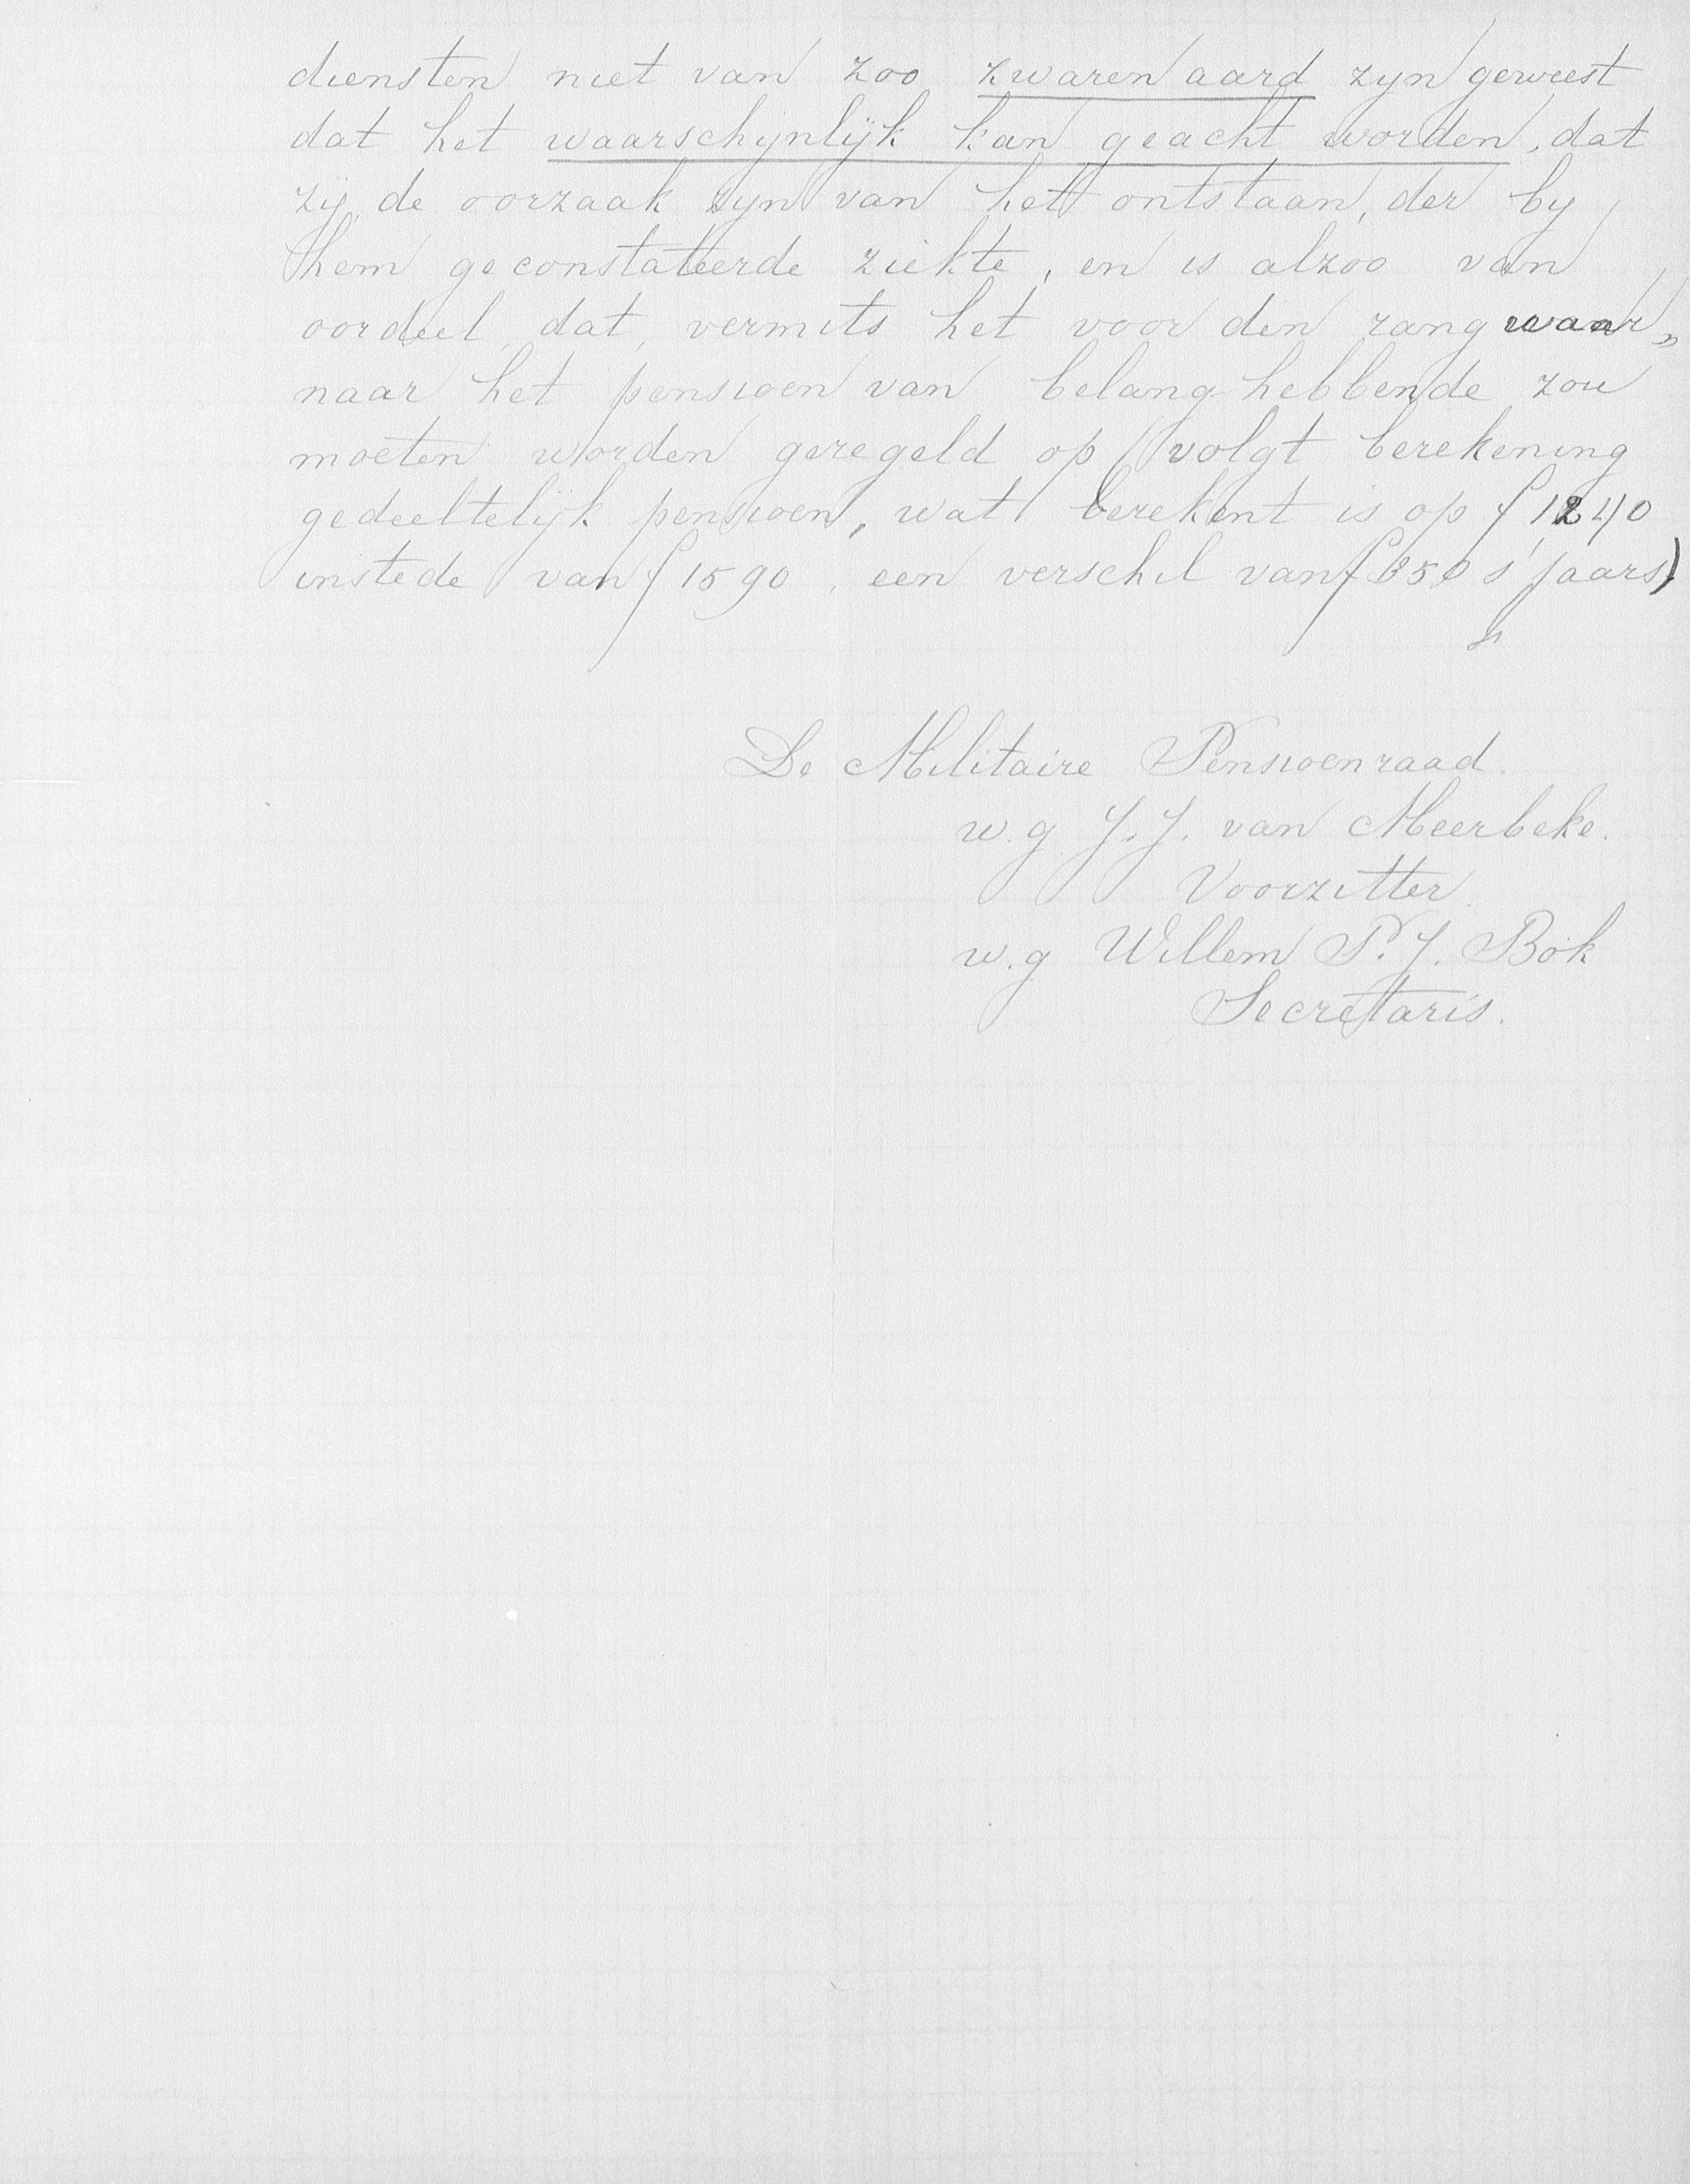 diensten niet van zoo zwaren aard zijn geweest
dat het waarschijnlijk kan geacht worden, dat
zij, de oorzaak zijn van het ontstaan, der bij
hem geconstateerde ziekte, en is alzoo van
oordeel, dat, vermits het voor den rang waar„
naar het pensioen van belanghebbende zou
moeten worden geregeld op (volgt berekening
gedeeltelijk pensioen, wat berekent is op f 1240
instede van f 1590, een verschil van f 350 s' jaars)
De Militaire Pensioenraad.
w.g J.J. van Meerbeke.
Voorzitter.
w.g Willem P.J. Bok
Secretaris.